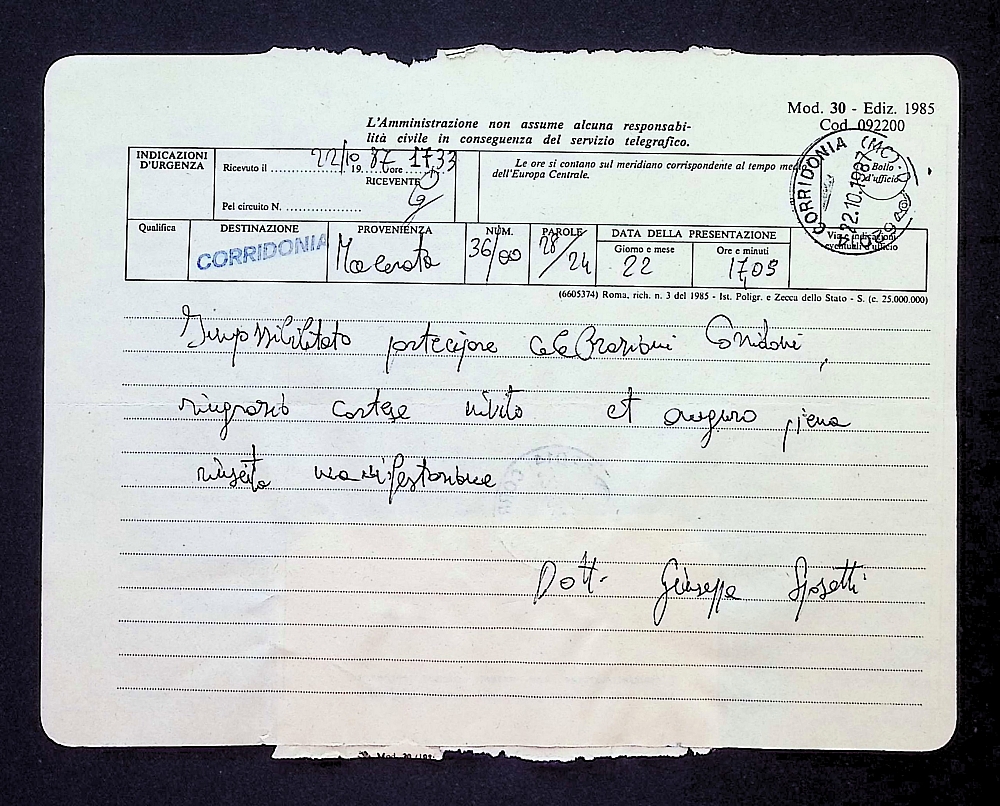 Mod. 30 - Ediz. 1985
Cod. 092200
L'Amministrazione non assume alcuna responsabi-
lità civile in conseguenza del servizio telegrafico.
INDICAZIONI
D'URGENZA
Ricevuto il 22/10 1987 ore 1733
RICEVENTE
Pel circuito N.
Le ore si contano sul meridiano corrispondente al tempo medio
dell'Europa Centrale.
CORRIDONIA (MC)
22.10.1987
Bollo
d'ufficio
Qualifica
DESTINAZIONE
CORRIDONIA
PROVENIENZA
Macerata
NUM.
36/00
PAROLE
28/24
DATA DELLA PRESENTAZIONE
Giorno e mese
22
Ore e minuti
1705
Via e indicazioni
eventuali d'ufficio
(6605374) Roma, rich. n. 3 del 1985 - Ist. Poligr. e Zecca dello Stato - S. (c. 25.000.000)
Impossibilitato partecipare celebrazioni Corridoni,
ringrazio cortese invito et auguro piena
riuscita manifestazione
Dott. Giuseppe Sposetti